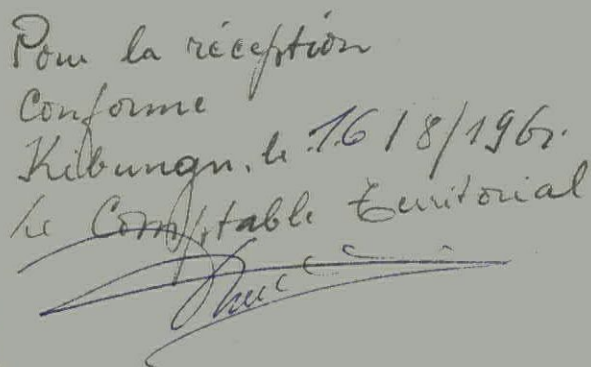 Pour la réception
Conforme
Kibungu, le 16/8/1961.
Le Comptable Territorial